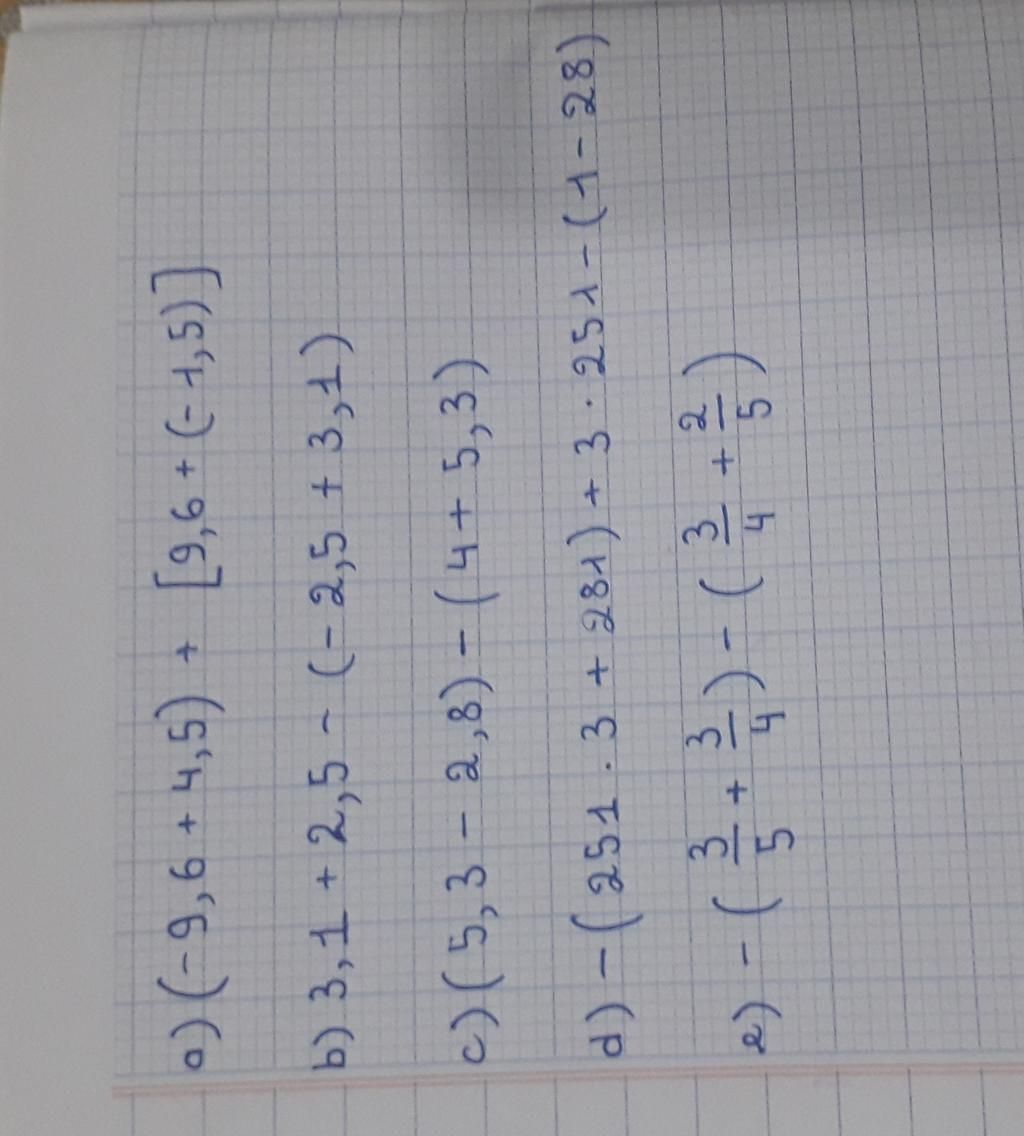 a) (-9,6 + 4,5) + [9,6 + (-1,5)]
b) 3,1 + 2,5 - (-2,5 + 3,1)
c) (5,3 - 2,8) - (4 + 5,3)
d) - (251 . 3 + 281) + 3 . 251 - (1 - 28)
e) - (3/5 + 3/4) - (3/4 + 2/5)